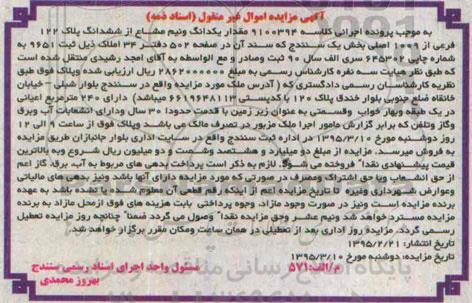 آگهی مزایده اموال غیر منقول (اسناد ذمه)
به موجب پرونده اجرائی کلاسه ۹۱۰۰۳۹۴ مقدار یکدانگ ونیم مشاع از ششدانگ پلاک ۱۲۲
فرعی از ۱۱۰۹ اصلی بخش یک سنندج که سند آن در صفحه ۵۰۲ دفتر ۳۴ املاک ذیل ثبت ۹۶۵۱ به
شماره چاپی ۶۴۵۳۰۲ سری الف سال ۹۰ ثبت وصادر و مع الواسطه به آقای امجد رشیدی منتقل شده است
که طبق نظر هیات سه نفره کارشناس رسمی به مبلغ ۲۸۶۲۰۰۰۰۰۰ ریال ارزیابی شده وپلاک فوق طبق
نظریه کارشناسان رسمی دادگستری که (آدرس ملک مورد مزایده واقع در سنندج بلوار شبلی - خیابان
خانقاه ضلع جنوبی بلوار خندق پلاک ۱۲۰ با کدپستی ۶۶۱۹۶۴۸۱۱۳ میباشد) دارای ۲۴۰ مترمربع اعیانی
در یک طبقه وبهار خواب وقسمتی به عنوان زیر زمین با قدمت حدودا ۳۰ سال ودارای انشعابات آب وبرق
وگاز وتلفن که برابر گزارش مامور اجرا ملک مزبور در تصرف مالک می باشد وپلاک فوق از ساعت ۹ الی ۱۲
روز دوشنبه مورخ ۱۳۹۵/۳/۱۰ در اداره ثبت سنندج واقع در سایت اداری بلوار جانبازان طریق مزایده
به فروش میرسد. مزایده از مبلغ دو میلیارد و هشتصد وشصت و دو میلیون ریال شروع وبه بالاترین
قیمت پیشنهادی نقدا" فروخته می شود. لازم به ذکر است پرداخت بدهی های مربوط به آب، برق، گاز اعم
از حق انشعاب ویا حق اشتراک ومصرف در صورتی که مورد مزایده دارای آنها باشد ونیز بدهی های مالیاتی
وعوارض شهرداری وغیره تا تاریخ مزایده اعم از اینکه رقم قطعی آن معلوم شده یا نشده باشد به عهده
برنده مزایده است ونیز در صورت وجود مازاد، وجوه پرداختی بابت هزینه های فوق ازمحل مازاد به برنده
مزایده مسترد خواهد شد ونیم عشر وحق مزایده نقدا" وصول می گردد ضمنا" چنانچه روز مزایده تعطیل
رسمی گردد، مزایده روز اداری بعد از تعطیلی در همان ساعت ومکان مقرر برگزار خواهد شد.
تاریخ انتشار: ۱۳۹۵/۲/۲۱
تاریخ مزایده: دوشنبه مورخ ۱۳۹۵/۳/۱۰
م/الف:۵۷۱
مسئول واحد اجرای اسناد رسمی سنندج
بهروز محمدی